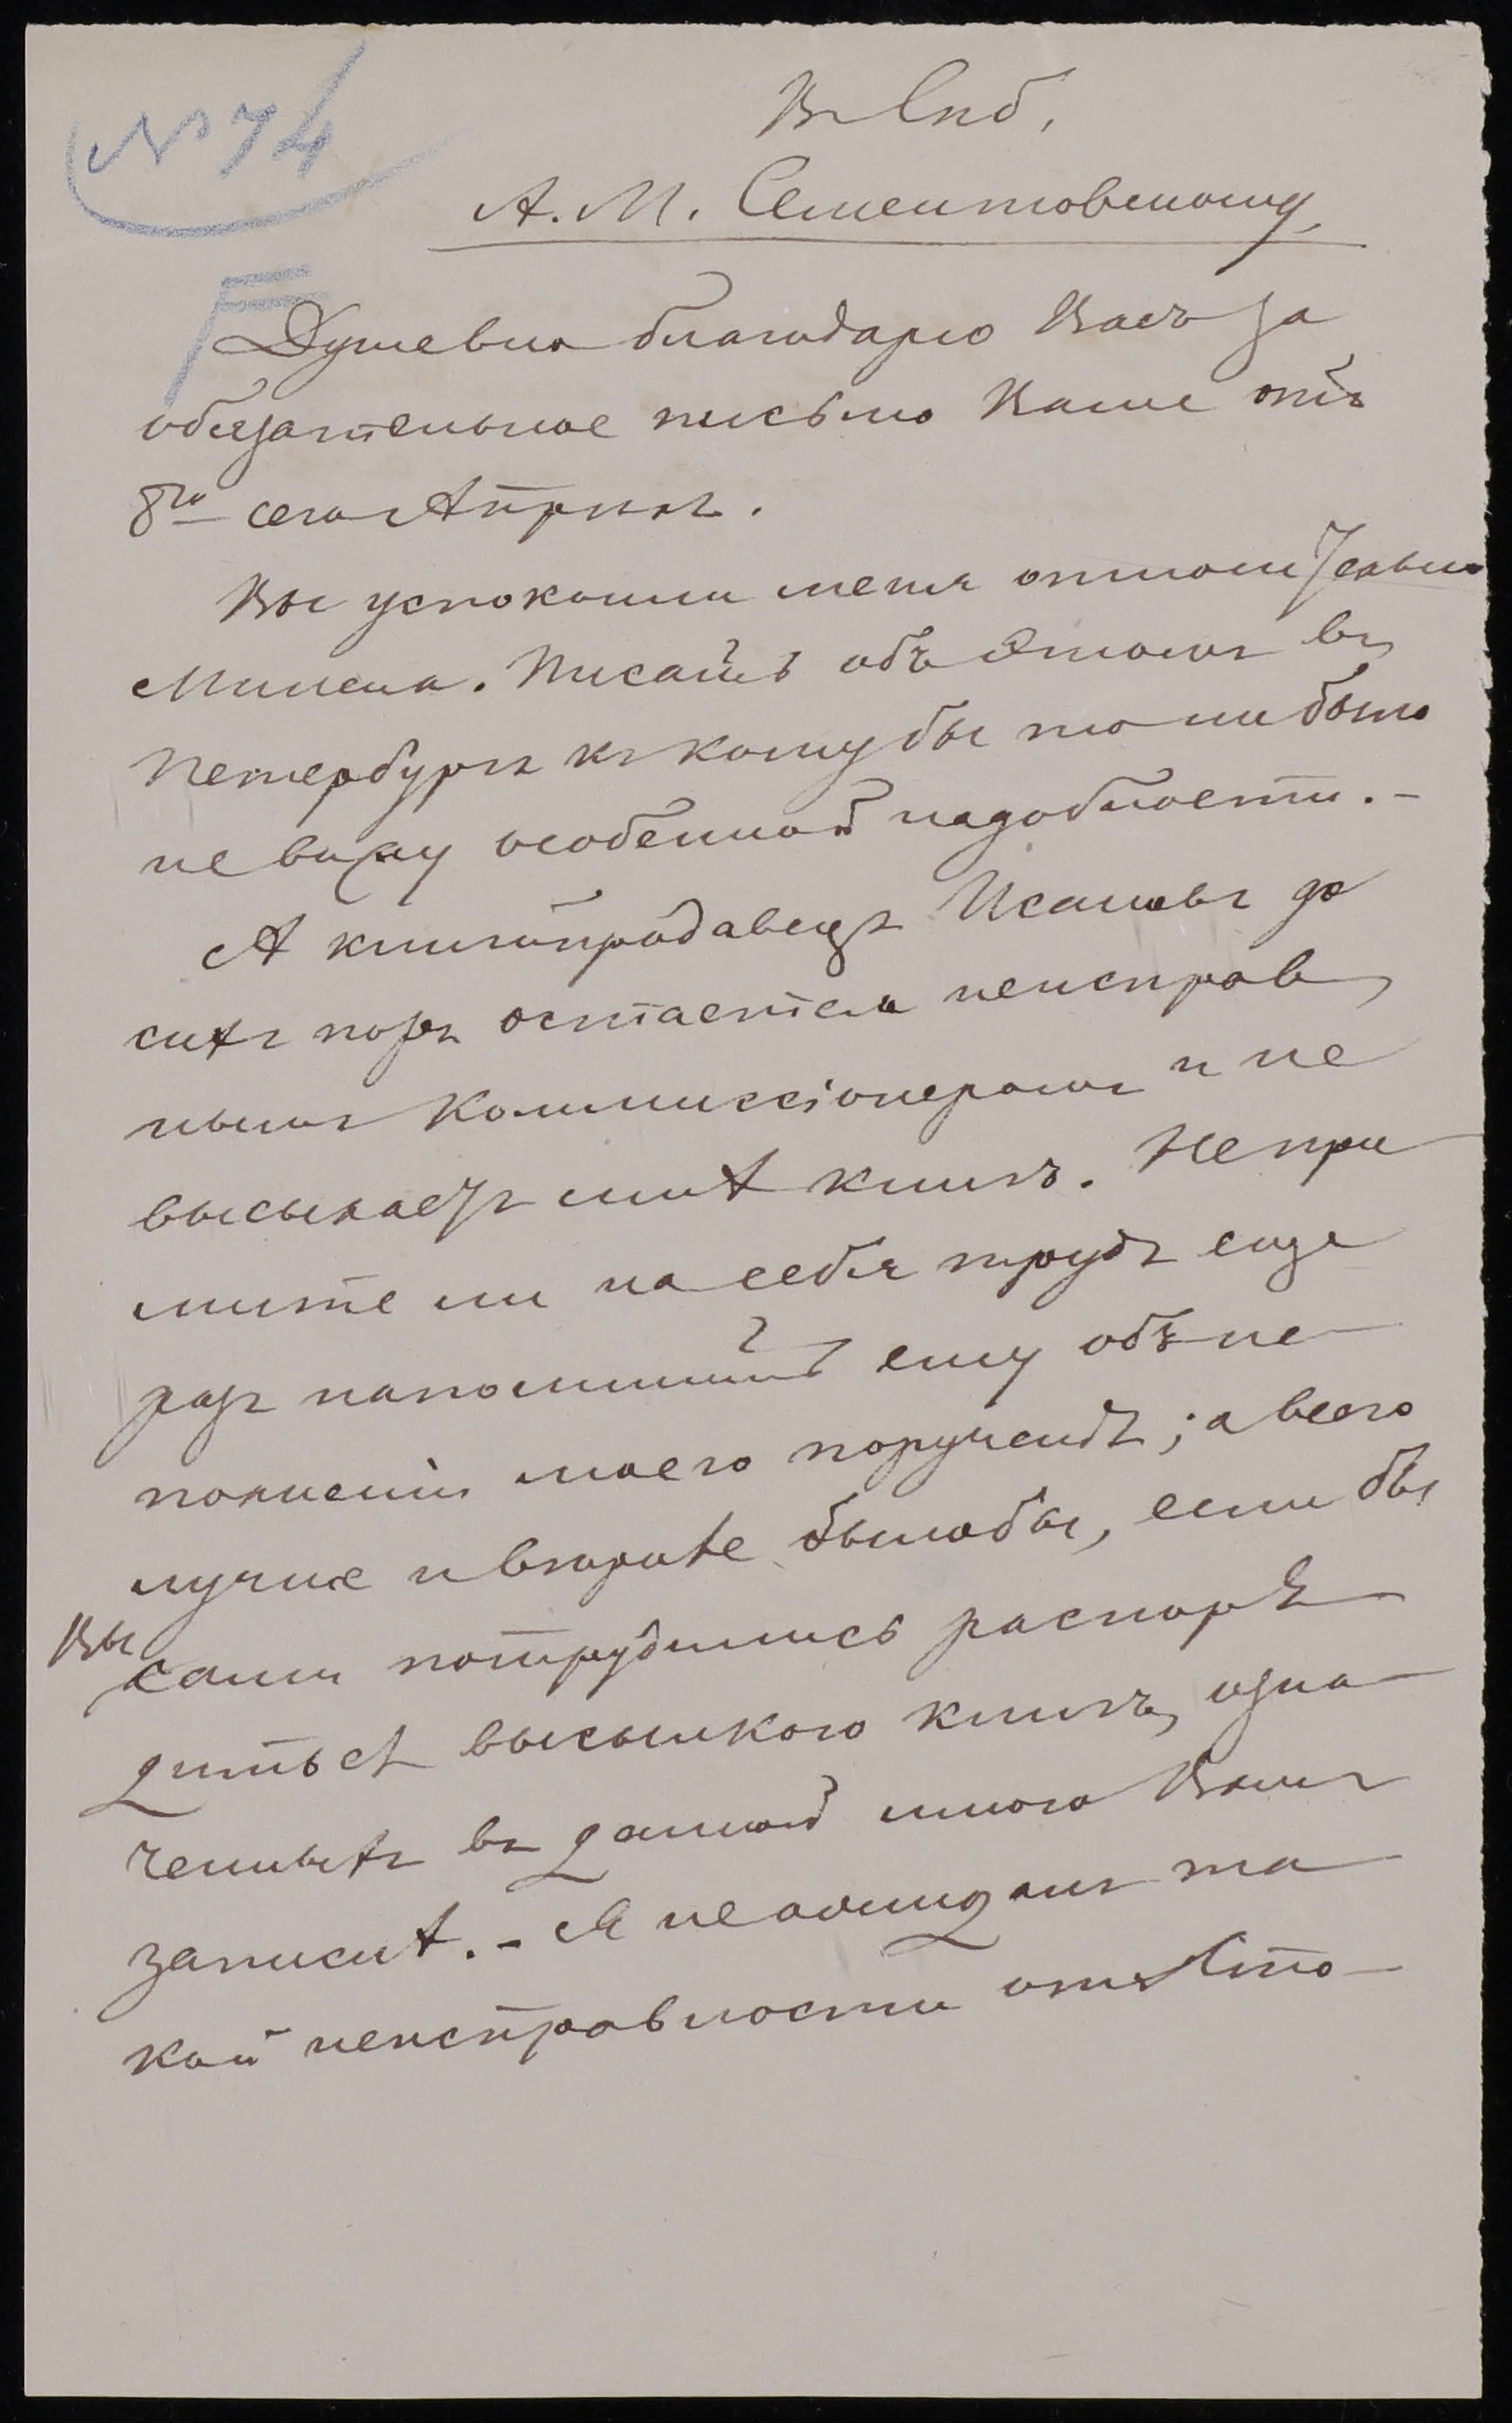 № 74
Въ Спб.
А. М. Сементовскому
Душевно благодарю Васъ за
обязательное письмо Ваше отъ
8го сего Апрѣля.
Вы успокоили меня относительно
Писать объ этомъ въ
Петербургъ къ кому бы то ни было
не вижу особенной надобности. –
А книгопродавецъ Исаковъ до
сихъ поръ остается неисправ
нымъ Коммиссіонеромъ и не
высылаетъ мнѣ книгъ. Не при
мите ли на себя трудъ еще
разъ напомнить ему объ не
полненіи моего порученія; а всего
лучше и вѣрнѣе было бы, если бы
Вы
сами потрудились распоря
диться высылкою книгъ, озна
ченныхъ въ данной мною Вамъ
запискѣ. – Я не ожидалъ та
кой неисправности отъ Сто